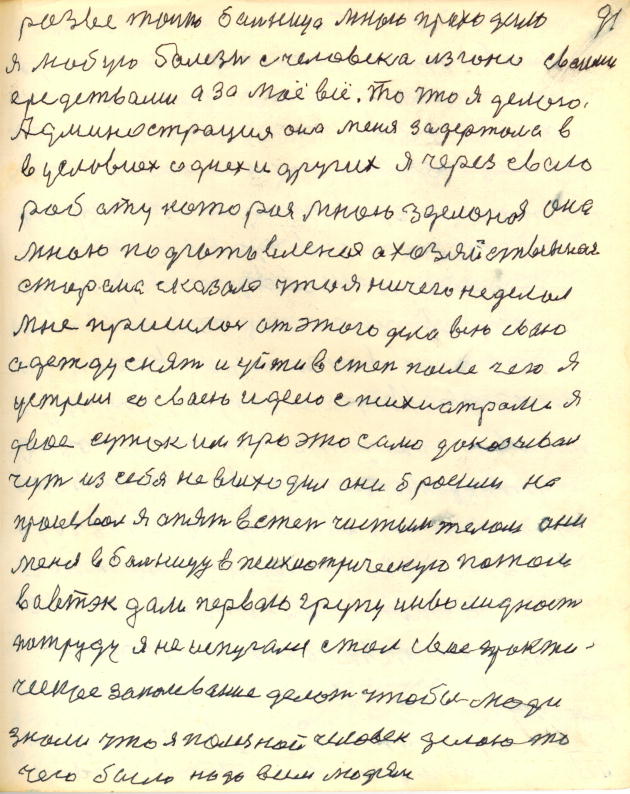 91
разве такою балница мною проходело
я любую болезн с человека изгоню своими
средствами а за моё всё. То что я делаю.
Администрация она меня задержала в
в условиях однех и других я через сваю
работу которая мною зделоноя она
мною подготовленоя а хозяйственная
старана сказала что я ничего неделал
мне пришлос от этого дела всю сваю
одежду снят и уйти в степ после чего я
устрели со сваею идеею с психиатрами я
двое суток им про это само доказывал
чут из себя не выходил они бросили на
произвол я опят в степ чистым телом они
меня в балницу в психиотрическую потом
вовтэк дали первою групу инволидност
потруду я не испугался стал свое практи-
ческое закаливание делот чтобы люди
знали что я полезной человек делаю то
чего было надо всем людям